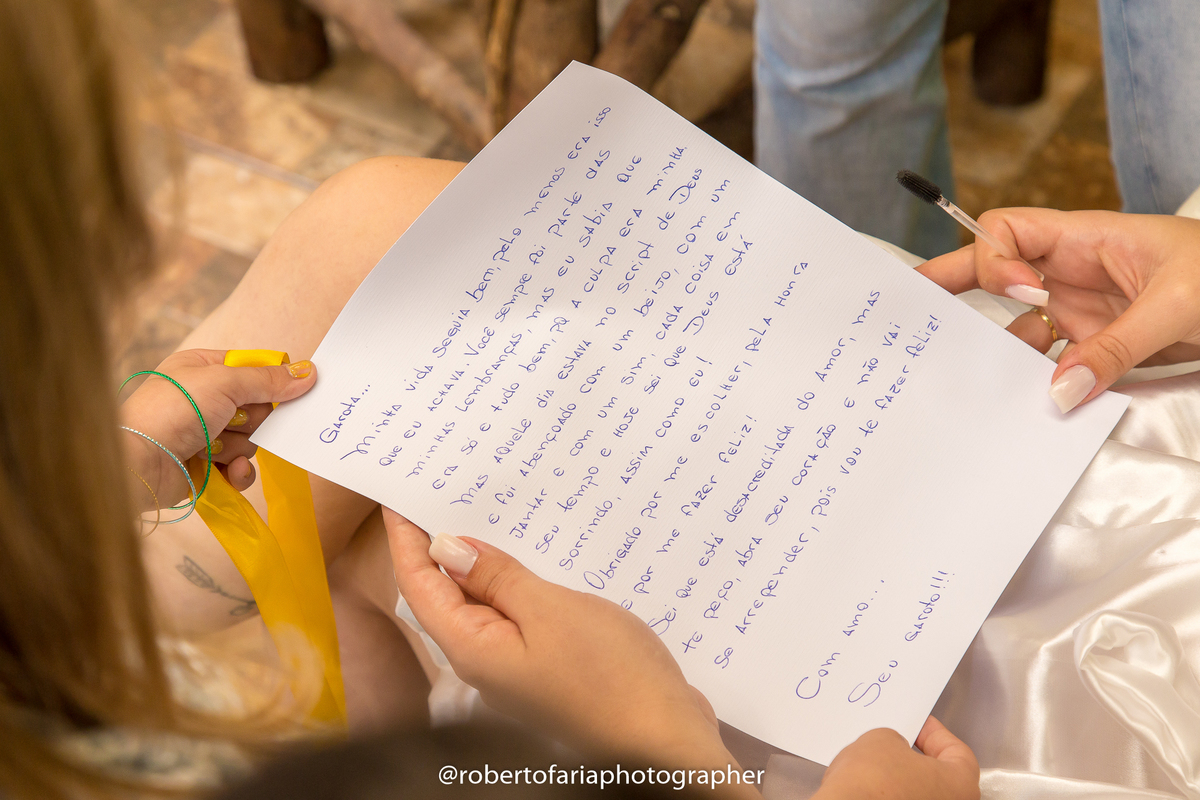 Garota...
Minha vida seguia bem, pelo menos era isso
que eu achava. Você sempre foi parte das
minhas lembranças, mas eu sabia que
era só e tudo bem, pq a culpa era minha.
Mas aquele dia estava no script de Deus
e fui abençoado com um beijo, com um
jantar e com um sim, cada coisa em
seu tempo e hoje sei que Deus está
sorrindo, assim como eu!
Obrigado por me escolher, pela honra
e por me fazer feliz!
Sei que está desacreditada do amor, mas
te peço, abra seu coração e não vai
se arrepender, pois vou te fazer feliz!
Com amo...
Seu garoto!!!
@robertofariaphotographer